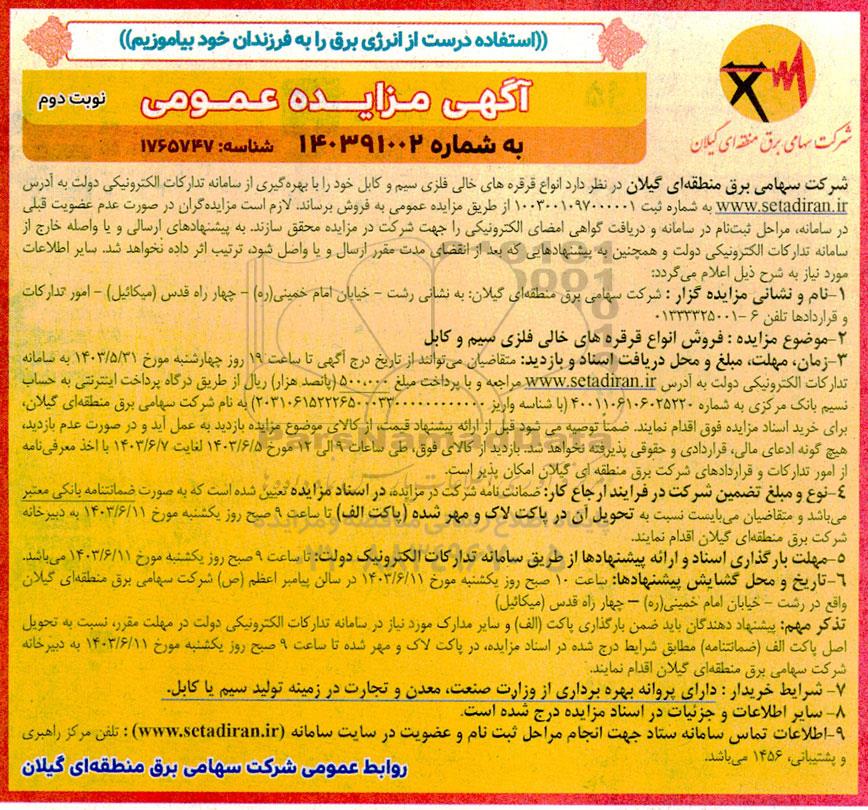 ((استفاده درست از انرژی برق را به فرزندان خود بیاموزیم))
آگهی مزایده عمومی
نوبت دوم
به شماره ۱۴۰۳۹۱۰۰۲
شناسه: ۱۷۶۵۷۴۷
شرکت سهامی برق منطقه‌ای گیلان
شرکت سهامی برق منطقه‌ای گیلان در نظر دارد انواع قرقره های خالی فلزی سیم و کابل خود را با بهره‌گیری از سامانه تدارکات الکترونیکی دولت به آدرس
www.setadiran.ir به شماره ثبت ۱۰۰۳۰۰۱۰۹۷۰۰۰۰۰۱ از طریق مزایده عمومی به فروش برساند. لازم است مزایده‌گران در صورت عدم عضویت قبلی
در سامانه، مراحل ثبت‌نام در سامانه و دریافت گواهی امضای الکترونیکی را جهت شرکت در مزایده محقق سازند. به پیشنهادهای ارسالی و یا واصله خارج از
سامانه تدارکات الکترونیکی دولت و همچنین به پیشنهادهایی که بعد از انقضای مدت مقرر ارسال و یا واصل شود، ترتیب اثر داده نخواهد شد. سایر اطلاعات
مورد نیاز به شرح ذیل اعلام می‌گردد:
۱-نام و نشانی مزایده گزار : شرکت سهامی برق منطقه‌ای گیلان: به نشانی رشت - خیابان امام خمینی(ره) – چهار راه قدس (میکائیل) – امور تدارکات
و قراردادها تلفن ۶ -۰۱۳۳۳۳۲۵۰۰۱
۲-موضوع مزایده : فروش انواع قرقره های خالی فلزی سیم و کابل
۳-زمان، مهلت، مبلغ و محل دریافت اسناد و بازدید: متقاضیان می‌توانند از تاریخ درج آگهی تا ساعت ۱۹ روز چهارشنبه مورخ ۱۴۰۳/۵/۳۱ به سامانه
تدارکات الکترونیکی دولت به آدرس www.setadiran.ir مراجعه و با پرداخت مبلغ ۵۰۰.۰۰۰ (پانصد هزار) ریال از طریق درگاه پرداخت اینترنتی به حساب
نسیم بانک مرکزی به شماره ۴۰۰۱۱۰۶۱۰۶۰۲۵۲۲۰ (با شناسه واریز) به نام شرکت سهامی برق منطقه‌ای گیلان،
برای خرید اسناد مزایده فوق اقدام نمایند. ضمناً توصیه می شود قبل از ارائه پیشنهاد قیمت، از کالای موضوع مزایده بازدید به عمل آید و در صورت عدم بازدید،
هیچ گونه ادعای مالی، قراردادی و حقوقی پذیرفته نخواهد شد. بازدید از کالای فوق، طی ساعات ۹ الی ۱۲ مورخ ۱۴۰۳/۶/۵ لغایت ۱۴۰۳/۶/۷ با اخذ معرفی‌نامه
از امور تدارکات و قراردادهای شرکت برق منطقه ای گیلان امکان پذیر است.
۴-نوع و مبلغ تضمین شرکت در فرایند ارجاع کار: ضمانت‌نامه شرکت در مزایده، در اسناد مزایده تعیین شده است که به صورت ضمانتنامه بانکی معتبر
می‌باشد و متقاضیان می‌بایست نسبت به تحویل آن در پاکت لاک و مهر شده (پاکت الف) تا ساعت ۹ صبح روز یکشنبه مورخ ۱۴۰۳/۶/۱۱ به دبیرخانه
شرکت برق منطقه‌ای گیلان اقدام نمایند.
۵-مهلت بارگذاری اسناد و ارائه پیشنهادها از طریق سامانه تدارکات الکترونیک دولت: تا ساعت ۹ صبح روز یکشنبه مورخ ۱۴۰۳/۶/۱۱ می‌باشد.
۶-تاریخ و محل گشایش پیشنهادها: ساعت ۱۰ صبح روز یکشنبه مورخ ۱۴۰۳/۶/۱۱ در سالن پیامبر اعظم (ص) شرکت سهامی برق منطقه‌ای گیلان
واقع در رشت - خیابان امام خمینی(ره) – چهار راه قدس (میکائیل)
تذکر مهم: پیشنهاد دهندگان باید ضمن بارگذاری پاکت (الف) و سایر مدارک مورد نیاز در سامانه تدارکات الکترونیکی دولت در مهلت مقرر، نسبت به تحویل
اصل پاکت الف (ضمانتنامه) مطابق شرایط درج شده در اسناد مزایده، در پاکت لاک و مهر شده تا ساعت ۹ صبح روز یکشنبه مورخ ۱۴۰۳/۶/۱۱ به دبیرخانه
شرکت سهامی برق منطقه‌ای گیلان اقدام نمایند.
۷- شرایط خریدار : دارای پروانه بهره برداری از وزارت صنعت، معدن و تجارت در زمینه تولید سیم یا کابل.
۸- سایر اطلاعات و جزئیات در اسناد مزایده درج شده است.
۹-اطلاعات تماس سامانه ستاد جهت انجام مراحل ثبت نام و عضویت در سایت سامانه (www.setadiran.ir) : تلفن مرکز راهبری
و پشتیبانی، ۱۴۵۶ می‌باشد.
روابط عمومی شرکت سهامی برق منطقه‌ای گیلان
ParsNamadData